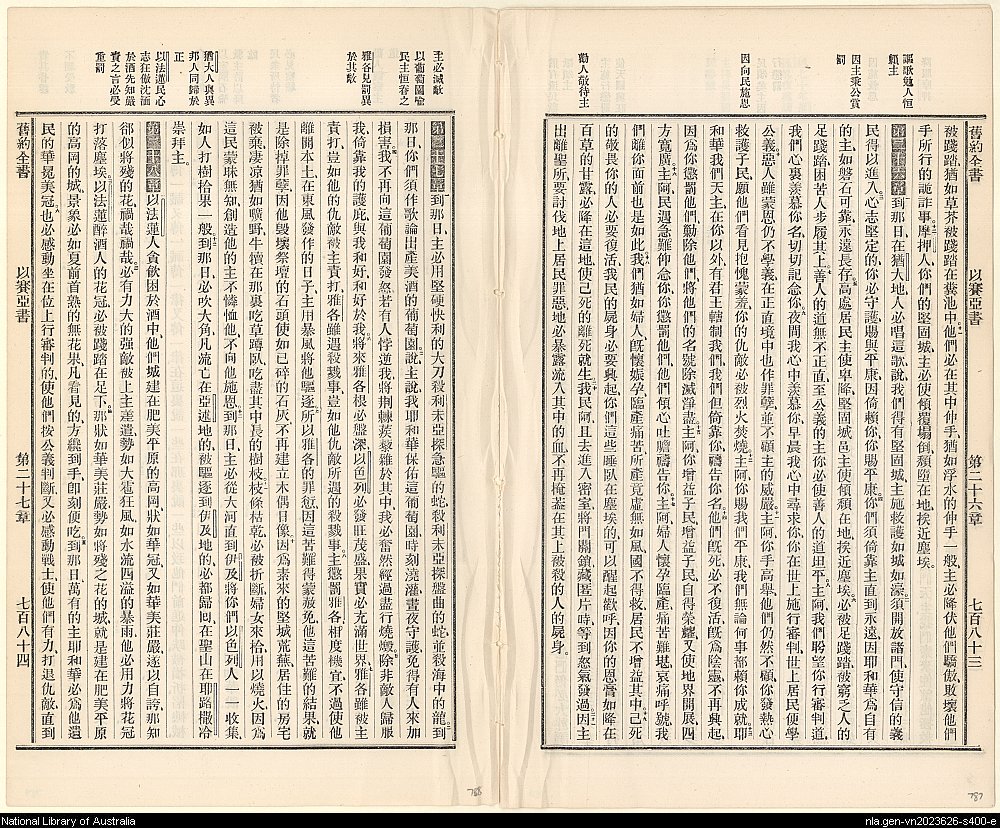 謳歌勉人恒
賴主
因主秉公賞
罰
因向民施恩
勸人敬待主
舊約全書 以賽亞書 第二十六章 七百八十三
被踐踏猶如草芥被踐踏在糞池中他們必在其中伸手猶如浮水的伸手一般主必降伏他們驕傲敗壞他們
手所行的詭詐事摩押人你們的堅固城主必使傾覆塌倒頹墮在地挨近塵埃
第二十六章到那日在猶大地人必唱這歌說我們得有堅固城主施救護如城如濠須開放諸門使守信的義
民得以進入心志堅定的你必守護賜與平康因倚賴你你賜平康你們須倚靠主直到永遠因耶和華為自有
的主如磐石可靠永遠長存高處居民主使卑降堅固城邑主使傾頹在地挨近塵埃必被足踐踏被窮乏人的
足踐踏困苦人步履其上善人的道無不正直至公義的主你必使善人的道坦平主阿我們盼望你行審判道
我們心裏羡慕你名切切記念你夜間我心中羡慕你早晨我心中尋求你你在世上施行審判世上居民便學
公義惡人雖蒙恩仍不學義在正直境中也作罪孽並不顧主的威嚴主阿你手高舉他們仍然不顧你發熱心
救護子民願他們看見抱愧蒙羞你的仇敵必被烈火焚燒主阿你賜我們平康我們無論何事都賴你成就耶
和華我們天主在你以外有君王轄制我們我們但倚靠你禱告你名他們旣死必不復活旣為陰靈不再興起
因為你懲罰他們勦除他們將他們的名號除滅淨盡主阿你增益子民增益子民自得榮耀又使地界開展四
方寬廣主阿民遇急難仰念你你懲罰他們他們傾心吐膽禱告你主阿婦人懷孕臨產痛苦難堪哀痛呼號我
們在你面前也是如此我們猶如婦人旣懷娠孕臨產痛苦所產竟虛無如風國不得救居民不增益其中已死
的敬畏你的人必要復活我民的屍身必要興起你們這些睡臥在塵埃的可以醒起歡呼因你的恩膏如降在
百草的甘露必降在這地使已死的離死就生我民阿且去進入密室將門關鎖藏匿片時等到怒氣發過因主
出離聖所要討伐地上居民罪惡地必暴露流入其中的血不再掩蓋在其上被殺的人的屍身
主必滅敵
以葡萄園喻
民主恒眷之
雅各見罰異
於其敵
猶大人與異
邦人同歸於
正
以法蓮民心
志狂傲沈湎
於酒先知嚴
責之言必受
重罰
第二十七章到那日主必用堅硬快利的大刀殺利未亞探急驅的蛇殺利未亞探盤曲的蛇並殺海中的龍到
那日你們須作歌論出產美酒的葡萄園說主說我耶和華保佑這葡萄園時刻澆灌晝夜守護免得有人來加
損害我不再向這葡萄園發怒若有人悖逆我將荆棘蒺藜雜於其中我必奮然經過盡行燒燬除非敵人歸服
我倚靠我的護庇與我和好和好於我將來雅各根必盤深以色列必發旺茂盛果實必充滿世界雅各雖被主
責打豈如他的仇敵被主責打雅各雖遇殺戮事豈如他仇敵所遇的殺戮事主懲罰雅各相度機宜不過使他
離開本土在東風發作的日子主用暴風將他驅逐所以雅各的罪愆因這苦難得蒙赦免他這苦難的結果就
是除掉罪孽因他毀壞祭壇的石頭使如已碎的石灰不再建立木偶日像因為素來的堅城荒蕪居住的房宅
被棄淒凉猶如曠野牛犢在那裏吃草蹲臥吃盡其中長的樹枝枝條枯乾必被折斷婦女來拾用以燒火因為
這民蒙昧無知創造他的主不憐恤他不向他施恩到那日主必從大河直到伊及將你們以色列人一一收集
如人打樹拾果一般到那日必吹大角凡流亡在亞述地的被驅逐到伊及地的必都歸回在聖山在耶路撒冷
崇拜主
第二十八章以法蓮人貪飲困於酒中他們城建在肥美平原的高岡狀如華冠又如華美莊嚴遂以自誇那知
郤似將殘的花禍哉禍哉必有力大的強敵被上主差遣勢如大雹狂風如水流四溢的暴雨他必用力將花冠
打落塵埃以法蓮醉酒人的花冠必被踐踏在足下那狀如華美莊嚴勢如將殘之花的城就是建在肥美平原
的高岡的城景象必如夏前首熟的無花果凡看見的方纔到手卽刻便吃到那日萬有的主耶和華必為他遺
民的華冕美冠也必感動坐在位上行審判的使他們按公義判斷又必感動戰士使他們有力打退仇敵直到
舊約全書 以賽亞書 第二十七章 七百八十四
788
787
National Library of Australia
nla.gen-vn2023626-s400-e